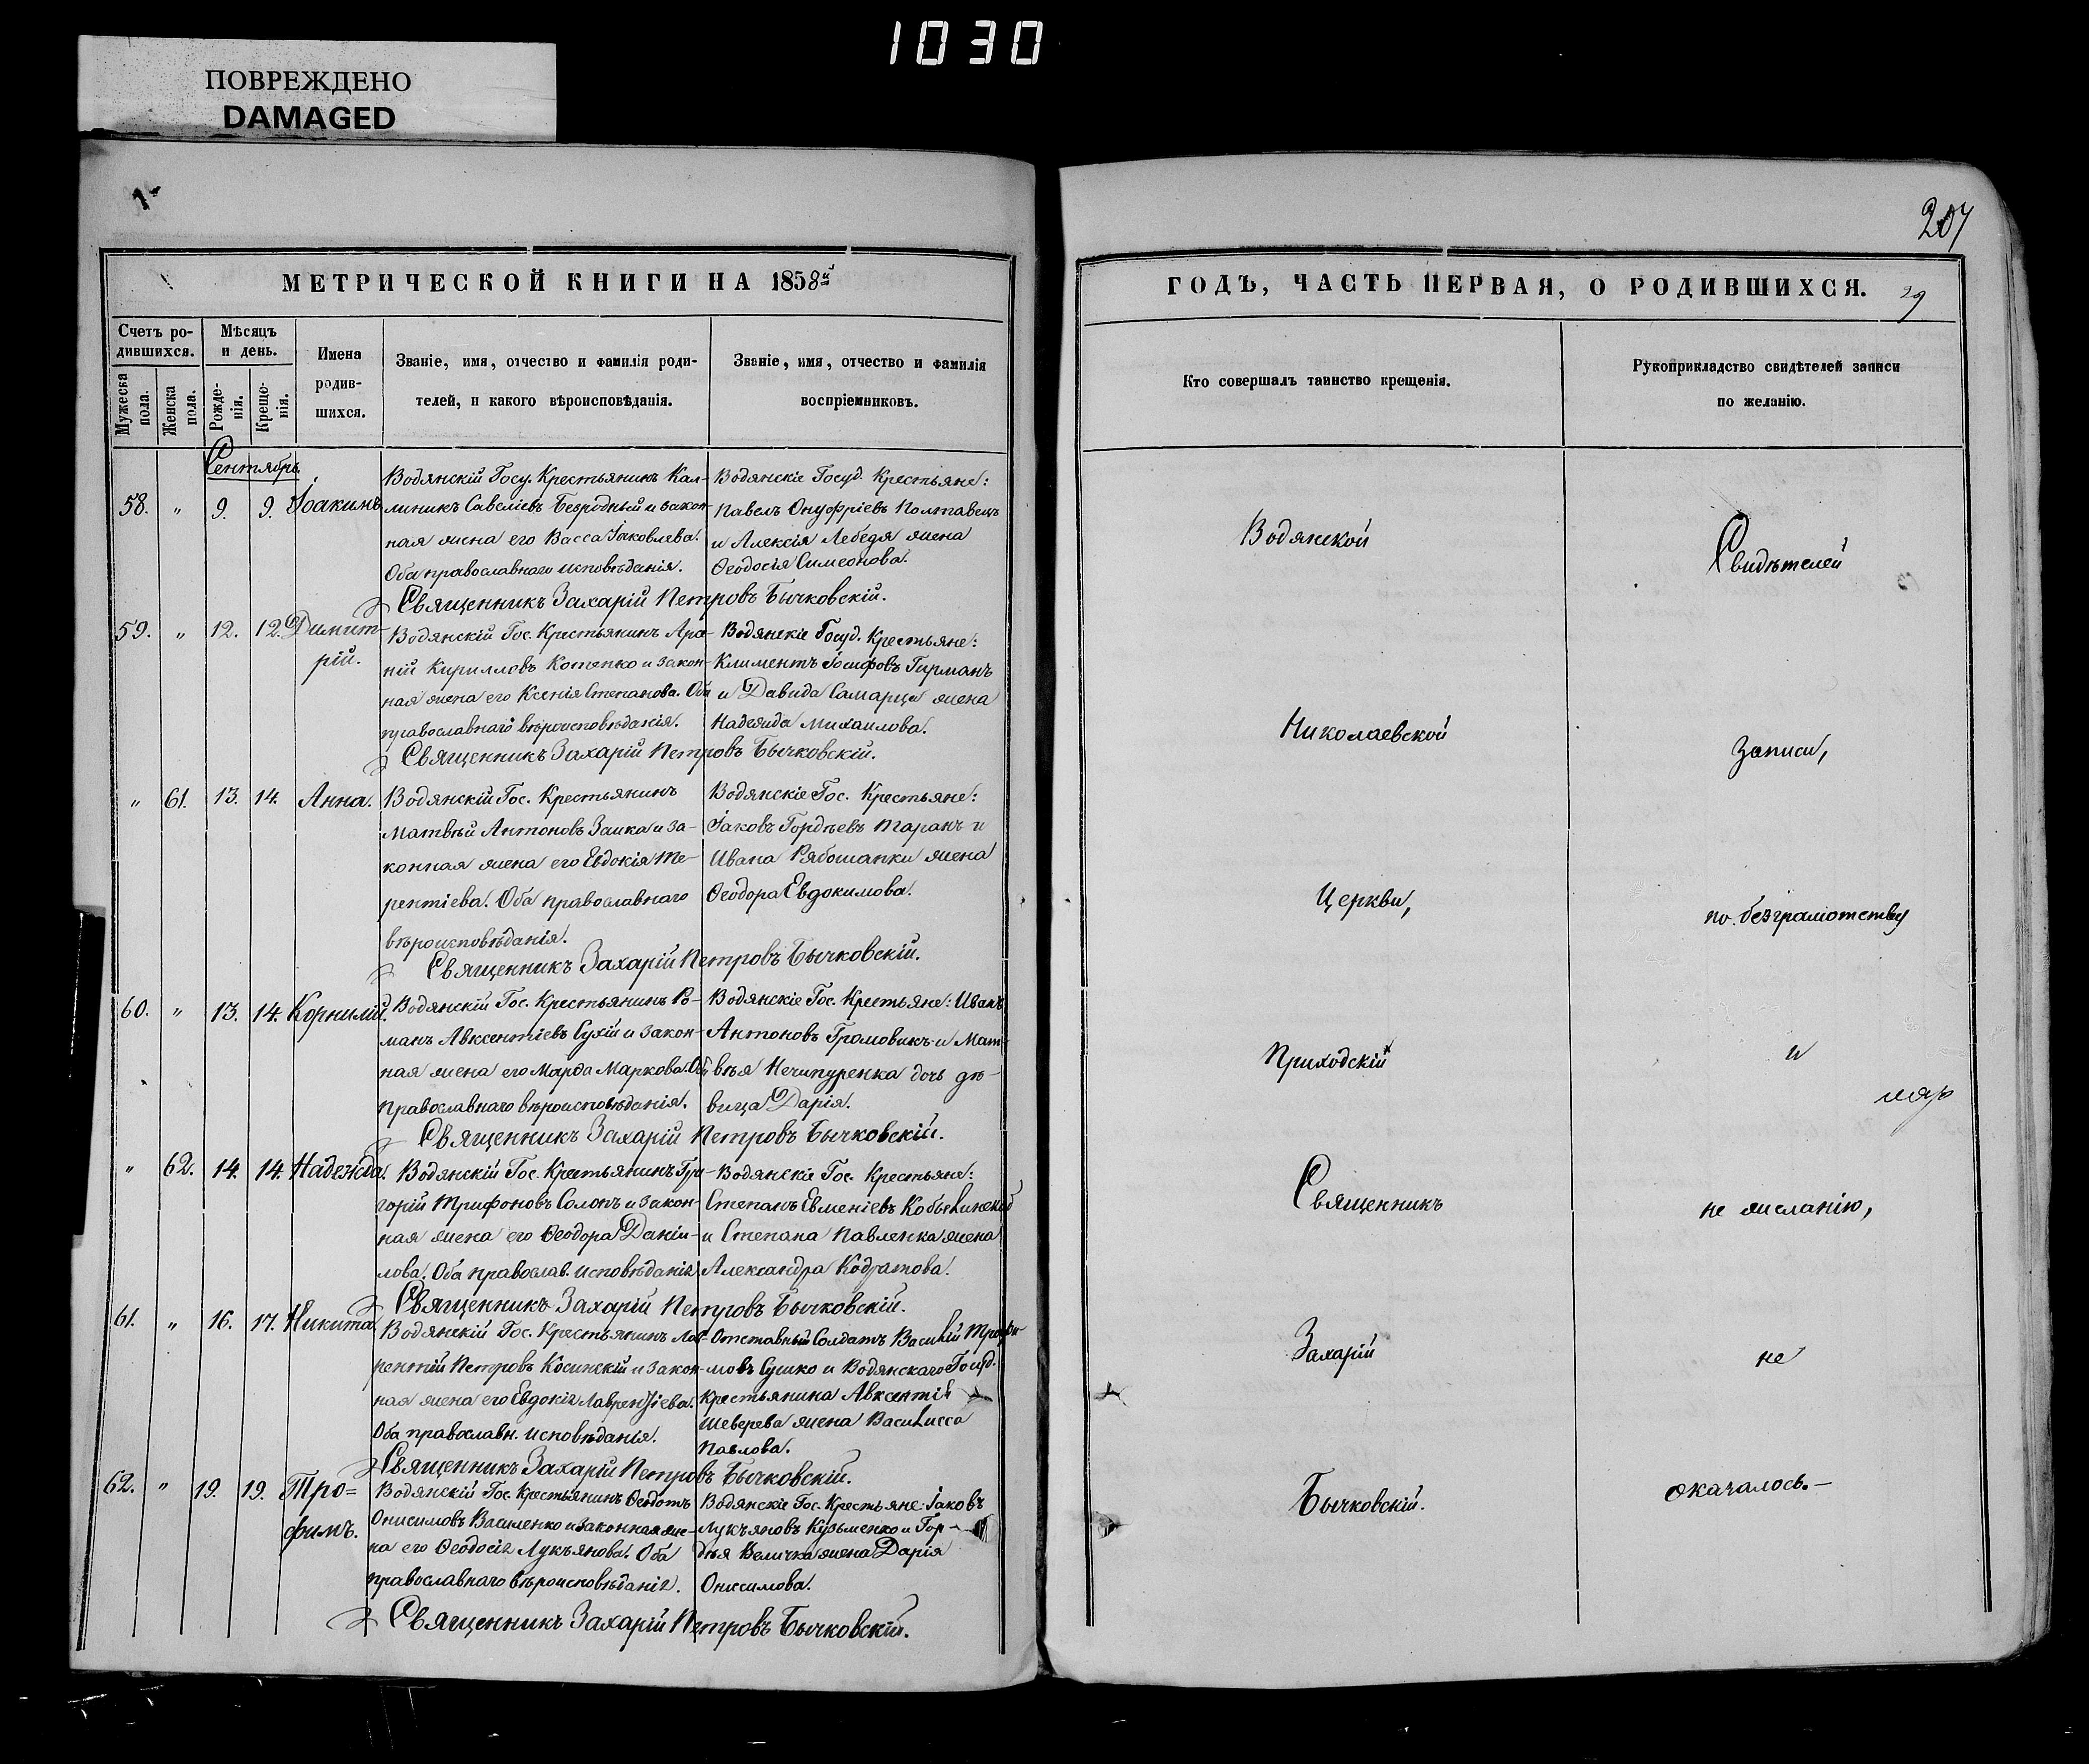 1030
ПОВРЕЖДЕНО
DAMAGED
207
МЕТРИЧЕСКОЙ КНИГИ НА 1858й
Счетъ ро-
дившихся.
Мужеска пола.
Женска пола.
Мѣсяцъ
и день.
Рожде-
нія.
Креще-
нія.
Имена
родив-
шихся.
Званіе, имя, отчество и фамилія роди-
телей, и какого вѣроисповѣданія.
Званіе, имя, отчество и фамилія
воспріемниковъ.
Сентябрь.
58. " 9. 9. Іоакимъ
Водянскій Госу. Крестьянинъ Кал-
линикъ Савеліевъ Безродный и закон-
ная жена его Васса Іаковлева.
Оба православнаго исповѣданія.
Водянскіе Госуд. Крестьяне:
Павелъ Онуфріевъ Полтавецъ
и Алексія Лебедя жена
Ѳеодосія Симеонова.
Священникъ Захарій Петровъ Бычковскій.
59. " 12. 12. Димит-
рій.
Водянскій Гос. Крестьянинъ
ній Кирилловъ Котенко и закон-
ная жена его Ксенія Степанова. Оба
православнаго вѣроисповѣданія.
Водянскіе Госуд. Крестьяне:
Климентъ Іосифовъ Гирманъ
и Давида Самарца жена
Надежда Михаилова.
Священникъ Захарій Петровъ Бычковскій.
" 61. 13. 14. Анна.
Водянскій Гос. Крестьянинъ
Матвѣй Антоновъ Заика и за-
конная жена его Евдокія Те-
рентіева. Оба православнаго
вѣроисповѣданія.
Водянскіе Гос. Крестьяне:
Іаковъ Гордѣевъ Таранъ и
Ивана Рябошапки жена
Ѳеодора Евдокимова.
Священникъ Захарій Петровъ Бычковскій.
60. " 13. 14. Корнилій.
Водянскій Гос. Крестьянинъ Ро-
манъ Авксентіевъ Сухій и закон-
ная жена его Марѳа Маркова. Оба
православнаго вѣроисповѣданія.
Водянскіе Гос. Крестьяне: Иванъ
Антоновъ Громовикъ и Мат-
вѣя Нечипуренка дочь дѣ-
вица Дарія.
Священникъ Захарій Петровъ Бычковскій.
" 62. 14. 14. Надежда.
Водянскій Гос. Крестьянинъ Гри-
горій Трифоновъ Солопъ и закон-
ная жена его Ѳеодора Даніи-
лова. Оба православ. исповѣданія
Водянскіе Гос. Крестьяне:
Степанъ Евменіевъ Кобылинскій
и Степана Павленка жена
Александра Кодратова.
Священникъ Захарій Петровъ Бычковскій.
61. " 16. 17. Никита.
Водянскій Гос. Крестьянинъ Лав-
рентій Петровъ Косинскій и закон-
ная жена его Евдокія Лаврентіева.
Оба православн. исповѣданія.
Отставный Солдатъ Василій Трофи-
мовъ Сушко и Водянскаго Госуд.
Крестьянина Авксентія
Шеверева жена Василисса
Павлова.
Священникъ Захарій Петровъ Бычковскій.
62. " 19. 19. Тро=
фимъ.
Водянскій Гос. Крестьянинъ Ѳеодотъ
Онисимовъ Василенко и законная же-
на его Ѳеодосія Лукъянова. Оба
православнаго вѣроисповѣданія.
Водянскіе Гос. Крестьяне: Іаковъ
Лукъяновъ Кузьменко и Гор-
дѣя Величка жена Дарія
Онисимова.
Священникъ Захарій Петровъ Бычковскій.
ГОДЪ, ЧАСТЬ ПЕРВАЯ, О РОДИВШИХСЯ. 29
Кто совершалъ таинство крещенія.
Рукоприкладство свидѣтелей записи
по желанію.
Водянской
Николаевской
Церкви,
Приходскій
Священникъ
Захарій
Бычковскій.
Свидѣтелей
записи,
по безграмотству
и
не желанію,
не
окачалось.—